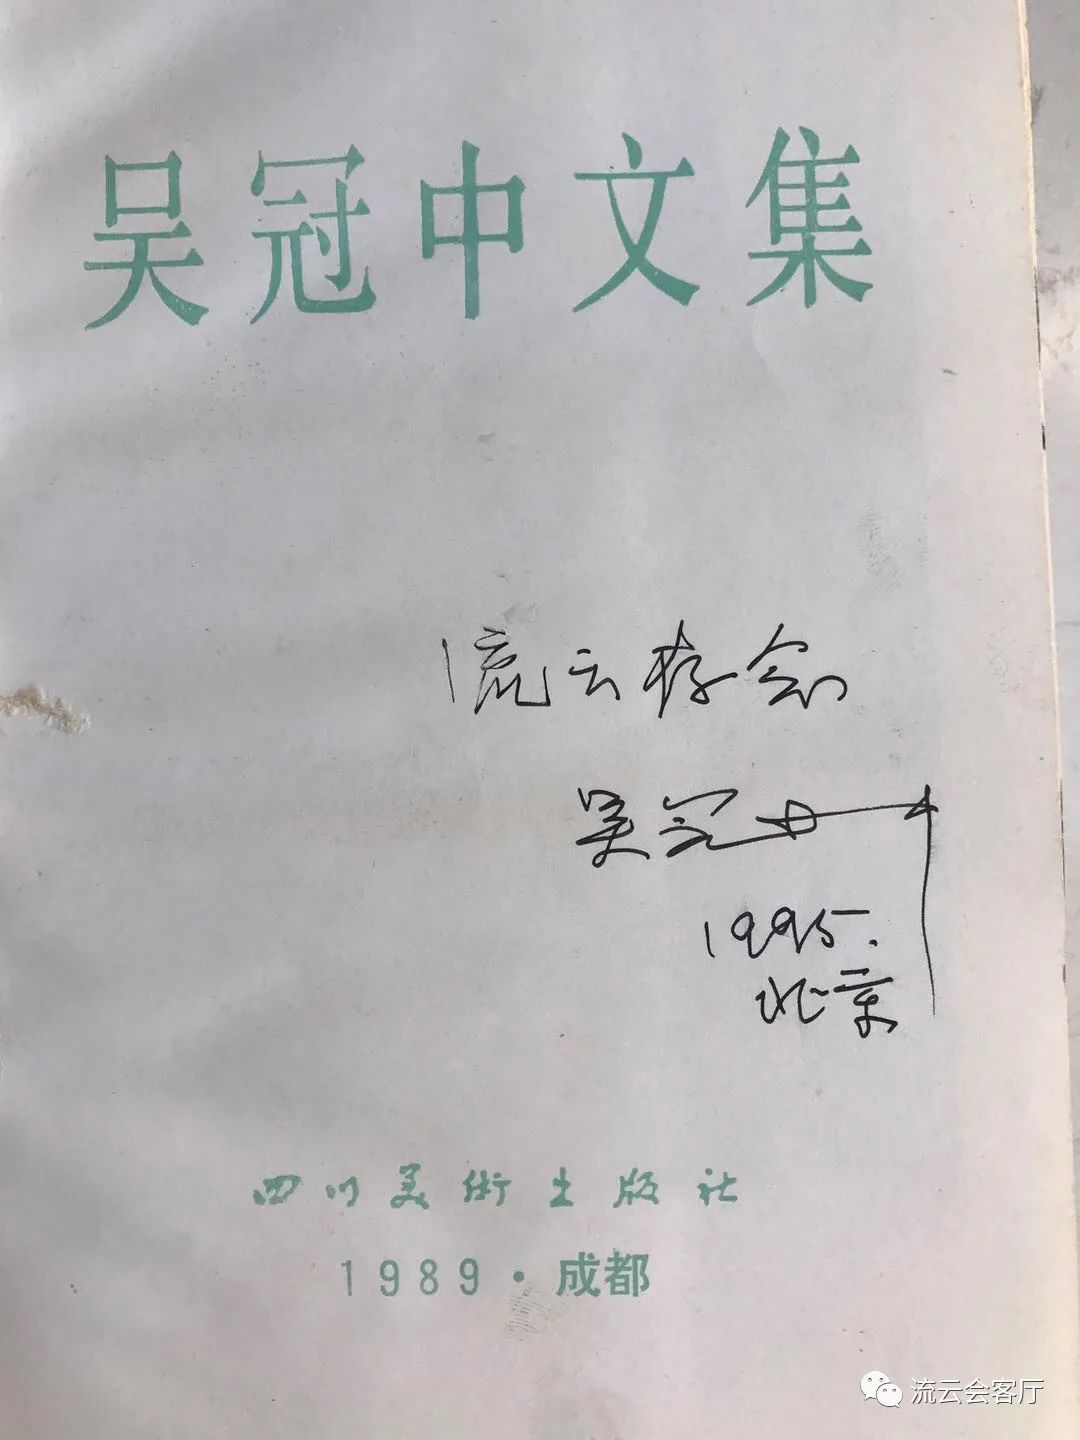 吴冠中文集
流云存念
吴冠中
1995.
北京
四川美術出版社
1989·成都
流云会客厅